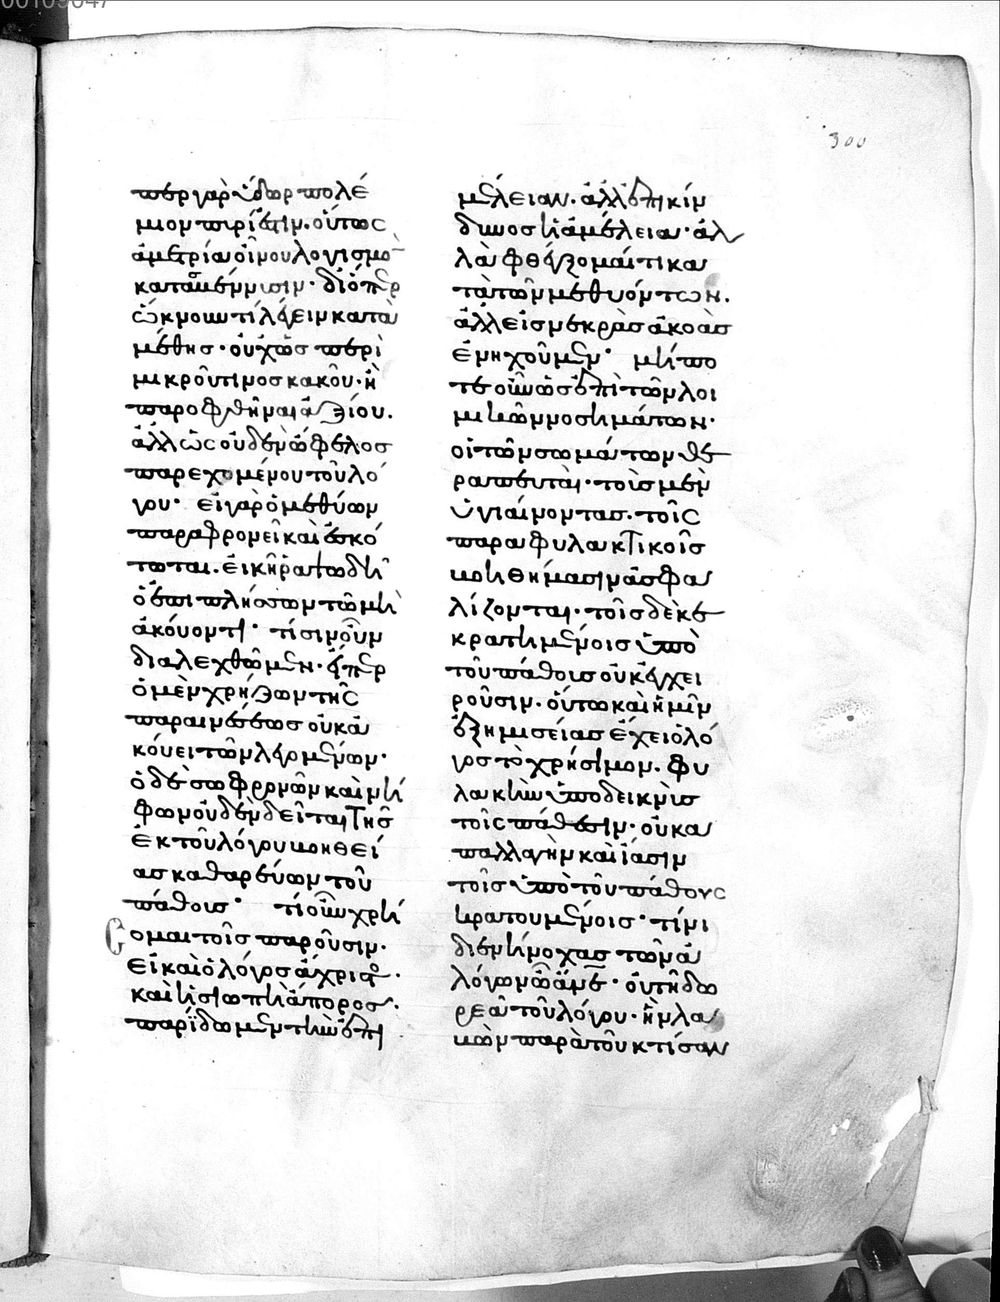 00109047
300
περ γὰρ ὕδωρ πολέ
μιον πυρί ἐστιν. οὕτως
ἀμετρία οἴνου λογισμὸν
κατασβέννυσιν. διόπερ
ὀκνου τι λέγειν κατὰ
μέθης. οὐχ ὡς περὶ
μικροῦ τινος κακοῦ. ἢ
παροφθῆναι ἀξίου.
ἀλλ ὡς οὐδὲν ὄφελος
παρεχομένου τοῦ λό
γου. εἰ γὰρ ὁ μεθύων
παραφρονεῖ καὶ ἐσκό
τωται. εἰκῆ ῥαψωδεῖ
ὁ ἐπιπλήσσων τῶ μὴ
ἀκούοντι. τίσιν οὖν
διαλεχθῶμεν. εἴπερ
ὁ μὲν χρήζων τῆς
παραινέσεως οὐκ ἀ
κούει τῶν λεγομένων.
ὁ δὲ σωφρονῶν καὶ νή
φων οὐδὲν δεῖται τῆς
ἐκ τοῦ λόγου βοηθεί
ας καθαρεύων τοῦ
πάθους. τί οὖν χρή
σομαι τοῖς παροῦσιν.
εἰ καὶ ὁ λόγος ἄχρηστος.
καὶ ἡ σιωπὴ ἄπορος.
παρίδωμεν τὴν ἐπι
μέλειαν. ἀλλ ἐπικίν
δυνος ἡ ἀμέλεια. ἀλ
λὰ φθέγξομαί τι κα
τὰ τῶν μεθυόντων.
ἀλλ εἰς νεκρὰς ἀκοὰς
ἐνηχοῦμεν. μή πο
τε οὖν ὡς ἐπὶ τῶν λοι
μικῶν νοσημάτων.
οἱ τῶν σωμάτων θε
ραπευταὶ. τοὺς μὲν
ὑγιαίνοντας. τοῖς
παραφυλακτικοῖς
βοηθήμασιν ἀσφα
λίζονται. τοῖς δὲ κε
κρατημένοις ὑπὸ
τοῦ πάθους οὐκ ἐγχει
ροῦσιν. οὕτω καὶ ἡμῖν
ἐξ ἡμισείας ἔχει ὁ λό
γος τὸ χρήσιμον. φυ
λακὴν ὑποδεικνὺς
τοῖς πάθεσιν. οὐκ ἀ
παλλαγὴν καὶ ἴασιν
τοῖς ὑπὸ τοῦ πάθους
κρατουμένοις. τίνι
διενήνοχας τῶν ἀ
λόγων ὦ ἄνε. οὐ τῆ δω
ρεᾶ τοῦ λόγου. ἣν λα
βὼν παρὰ τοῦ κτίσαν